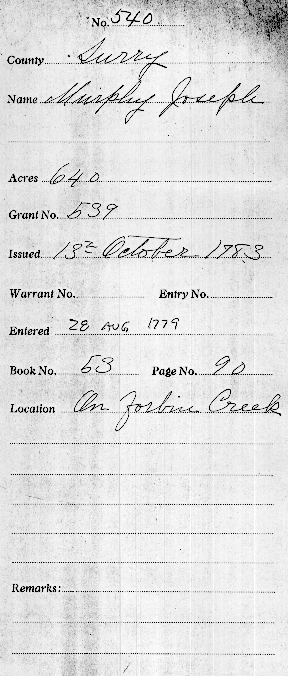 No. 540
County Surry
Name Murphy Joseph
Acres 640
Grant No. 539
Issued 13th October 1783
Warrant No. Entry No.
Entered 28 AUG 1779
Book No. 53 Page No. 90
Location On Forbin Creek
Remarks: